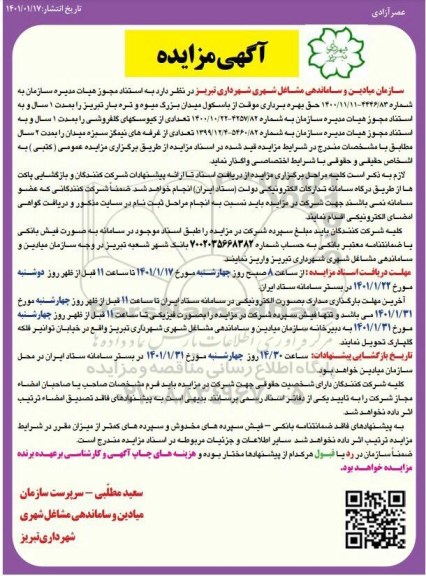 عصرآزادی
تاریخ انتشار: ۱۴۰۱/۰۱/۱۷
آگهی مزایده
سازمان میادین و ساماندهی مشاغل شهری شهرداری تبریز در نظر دارد به استناد مجوز هیات مدیره سازمان به
شماره ۱۴۰۰/۱۱/۱۱-۴۴۴۶/۸۳ حق بهره برداری موقت از باسکول میدان بزرگ میوه و تره بار تبریز را بمدت ۱ سال و به
استناد مجوز هیات مدیره سازمان به شماره ۱۴۰۰/۱۰/۲۲-۴۲۵۷/۸۲ تعدادی از کیوسکهای گلفروشی را بمدت ۱ سال و به
استناد مجوز هیات مدیره سازمان به شماره ۱۳۹۹/۱۲/۴-۵۴۶۰/۸۲ تعدادی از غرفه های نیمکز سبزه میدان را بمدت ۲ سال
مطابق با مشخصات مندرج در شرایط مزایده قید شده در اسناد مزایده از طریق برگزاری مزایده عمومی (کتبی) به
اشخاص حقیقی و حقوقی با شرایط اختصاصی واگذار نماید
لازم به ذکر است کلیه مراحل برگزاری مزایده از دریافت اسناد تا ارائه پیشنهادات شرکت کنندگان و بازگشایی پاکت
ها از طریق درگاه سامانه تدارکات الکترونیکی دولت (ستاد ایران) انجام خواهد شد. ضمناً شرکت کنندگانی که عضو
سامانه نمی باشند جهت شرکت در مزایده باید نسبت به انجام مراحل ثبت نام در سایت مذکور و دریافت گواهی
امضای الکترونیکی اقدام نمایند
کلیه شرکت کنندگان باید مبلغ سپرده شرکت در مزایده را طبق اسناد موجود در سامانه به صورت فیش بانکی
یا ضمانتنامه معتبر بانکی به حساب شماره ۷۰۰۲۰۳۵۶۶۸۳۸۲ بانک شهر شعبه تبریز در وجه سازمان میادین و
ساماندهی مشاغل شهری شهرداری تبریز واریز نمایند
مهلت دریافت اسناد مزایده: از ساعت ۸ صبح روز چهارشنبه مورخ ۱۴۰۱/۱/۱۷ تا ساعت ۱۱ قبل از ظهر روز دوشنبه
مورخ ۱۴۰۱/۱/۲۲ در بستر سامانه ستاد ایران.
آخرین مهلت بارگذاری مدارک بصورت الکترونیکی در سامانه ستاد ایران تا ساعت ۱۱ قبل از ظهر روز چهارشنبه مورخ
۱۴۰۱/۱/۳۱ می باشد و تنها فیش سپرده شرکت در مزایده را بصورت فیزیکی تا ساعت ۱۱ قبل از ظهر روز چهارشنبه
مورخ ۱۴۰۱/۱/۳۱ به دبیرخانه سازمان میادین و ساماندهی مشاغل شهری شهرداری تبریز واقع در خیابان توانیر فلکه
گلپارک تحویل نمایند
تاریخ بازگشایی پیشنهادات: ساعت ۱۴/۳۰ روز چهارشنبه مورخ ۱۴۰۱/۱/۳۱ در بستر سامانه ستاد ایران در محل
سازمان میادین خواهد بود.
کلیه شرکت کنندگان دارای شخصیت حقوقی جهت شرکت در مزایده باید فرم مشخصات صاحب یا صاحبان امضاء
مجاز شرکت را به تایید یکی از دفاتر اسناد رسمی برسانند. بدیهی است به پیشنهادهای فاقد تصدیق امضاء ترتیب
اثر داده نخواهد شد.
به پیشنهادهای فاقد ضمانتنامه بانکی – فیش سپرده های مخدوش و سپرده های کمتر از میزان مقرر در شرایط
مزایده ترتیب اثر داده نخواهد شد سایر اطلاعات و جزئیات مربوطه در اسناد مزایده مندرج است.
ضمناً سازمان در رد یا قبول هرکدام از پیشنهادها مختار بوده و هزینه های چاپ آگهی و کارشناسی برعهده برنده
مزایده خواهد بود.
سعید مطلّبی – سرپرست سازمان
میادین و ساماندهی مشاغل شهری
شهرداری تبریز